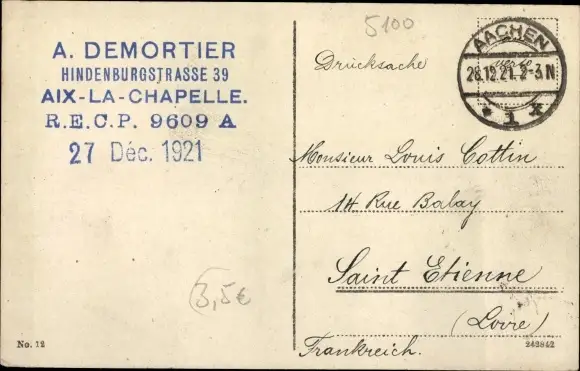 A. DEMORTIER
HINDENBURGSTRASSE 39
AIX-LA-CHAPELLE.
R.E.C.P. 9609 A
27 Déc. 1921
3,5€
No. 12
5100
AACHEN
28.12.21. 2-3 N
* 1 *
Drucksache
Monsieur Louis Cottin
14 Rue Balay
Saint Etienne
(Loire)
Frankreich.
243842